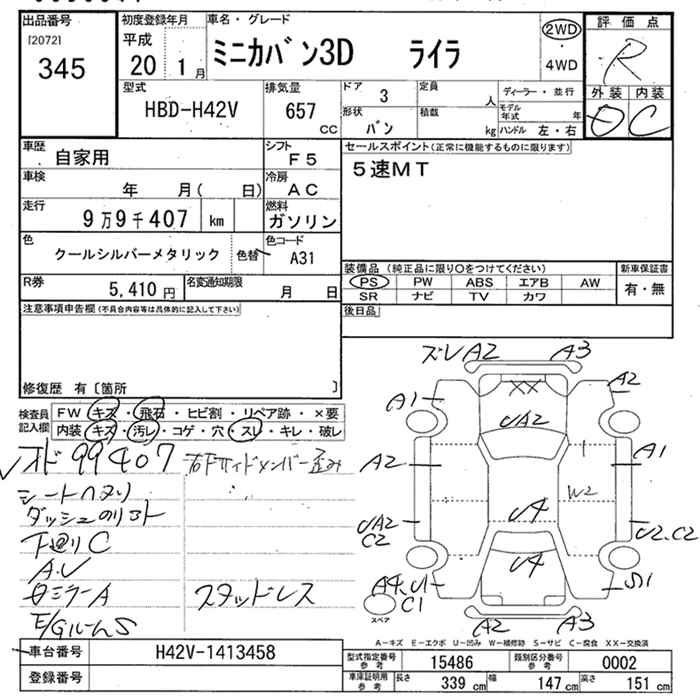 出品番号 初度登録年月 車名・グレード 評価点
[2072] 平成 2WD
345 20 1月 ミニカバン3D ライラ ・ R
4WD
型式 排気量 ドア 3 定員 人 ディーラー・並行 外装 内装
HBD-H42V 657 cc 形状 バン 積載 kg モデル年式 年 D C
ハンドル 左・右
車歴 自家用 シフト F5 セールスポイント(正常に機能するものに限ります)
車検 年 月( 日) 冷房 AC 5速MT
走行 9万9千407 km 燃料 ガソリン
色 クールシルバーメタリック 色替 色コード A31
装備品(純正品に限り○をつけてください) 新車保証書
R券 5,410円 名変通知期限 月 日 PS PW ABS エアB AW 有・無
SR ナビ TV カワ
注意事項申告欄(不具合内容等は具体的に記入して下さい) 後日品
修復歴 有〔箇所 〕
検査員記入欄 FW キズ・飛石・ヒビ割・リペア跡・×要
内装 キズ・汚レ・コゲ・穴・スレ・キレ・破レ
99407 右Fサイドメンバー歪み
シートヘタリ
ダッシュのリコト
下廻りC
A.U
ミラーA スタッドレス
E/GルームS
ズレA2 A3
A1 XX A2
UA2
A2 A1
W2
UA2 C2 U4 U2.C2
U4
A4.U1 C1 S1
スペア A2 A3
A-キズ E-エクボ U-凹み W-補修跡 S-サビ C-腐食 XX-交換済
車台番号 H42V-1413458 型式指定番号参考 15486 類別区分番号参考 0002
登録番号 車庫証明用参考 長さ 339 cm 幅 147 cm 高さ 151 cm